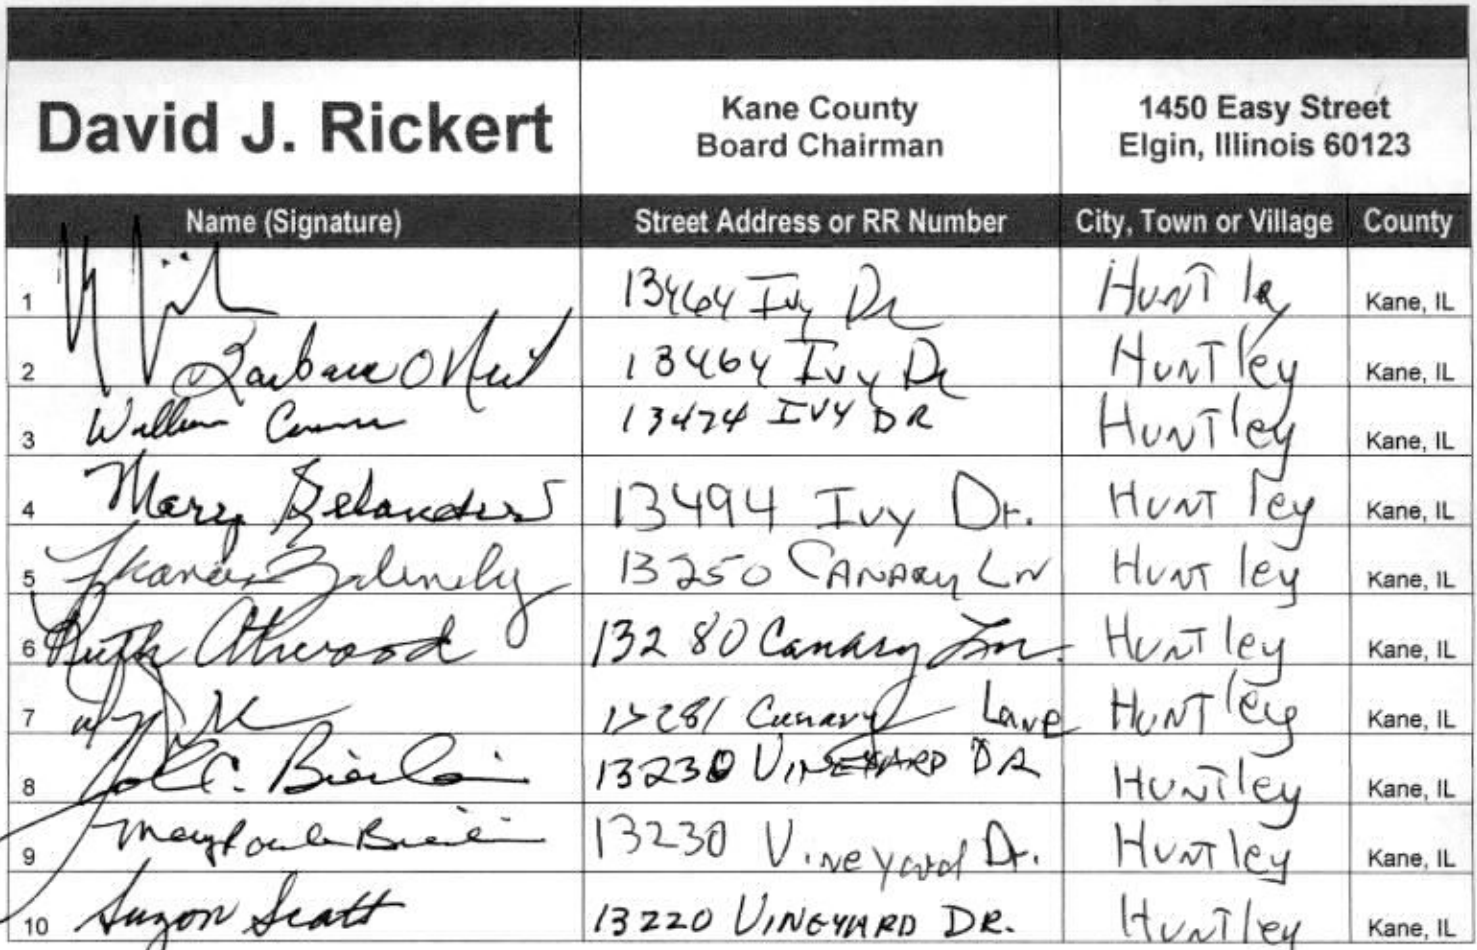 David J. Rickert
Kane County
Board Chairman
1450 Easy Street
Elgin, Illinois 60123
Name (Signature) Street Address or RR Number City, Town or Village County
1 13464 Ivy Dr Huntley Kane, IL
2 Barbara O'Neil 13464 Ivy Dr Huntley Kane, IL
3 William 13474 IVY DR Huntley Kane, IL
4 Mary 13494 Ivy Dr. Huntley Kane, IL
5 13250 CANARY LN Huntley Kane, IL
6 Ruth Atwood 13280 Canary Ln. Huntley Kane, IL
7 13281 Canary Lane Huntley Kane, IL
8 C. 13230 VINEYARD DR Huntley Kane, IL
9 13230 Vineyard Dr. Huntley Kane, IL
10 Suzon Scatt 13220 VINEYARD DR. Huntley Kane, IL